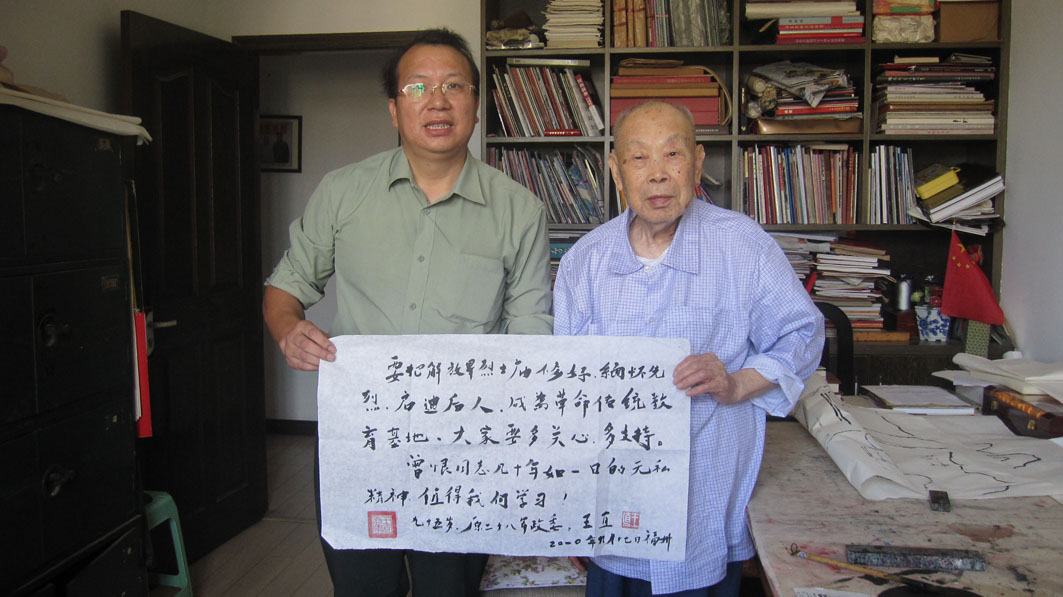 要把解放军烈士庙修好、缅怀先
烈、启迪后人、成为革命传统教
育基地、大家要多关心、多支持。
曾恨同志几十年如一日的无私
精神值得我们学习！
九十五岁、原二十八军政委、王直
二〇一〇年九月十七日福州